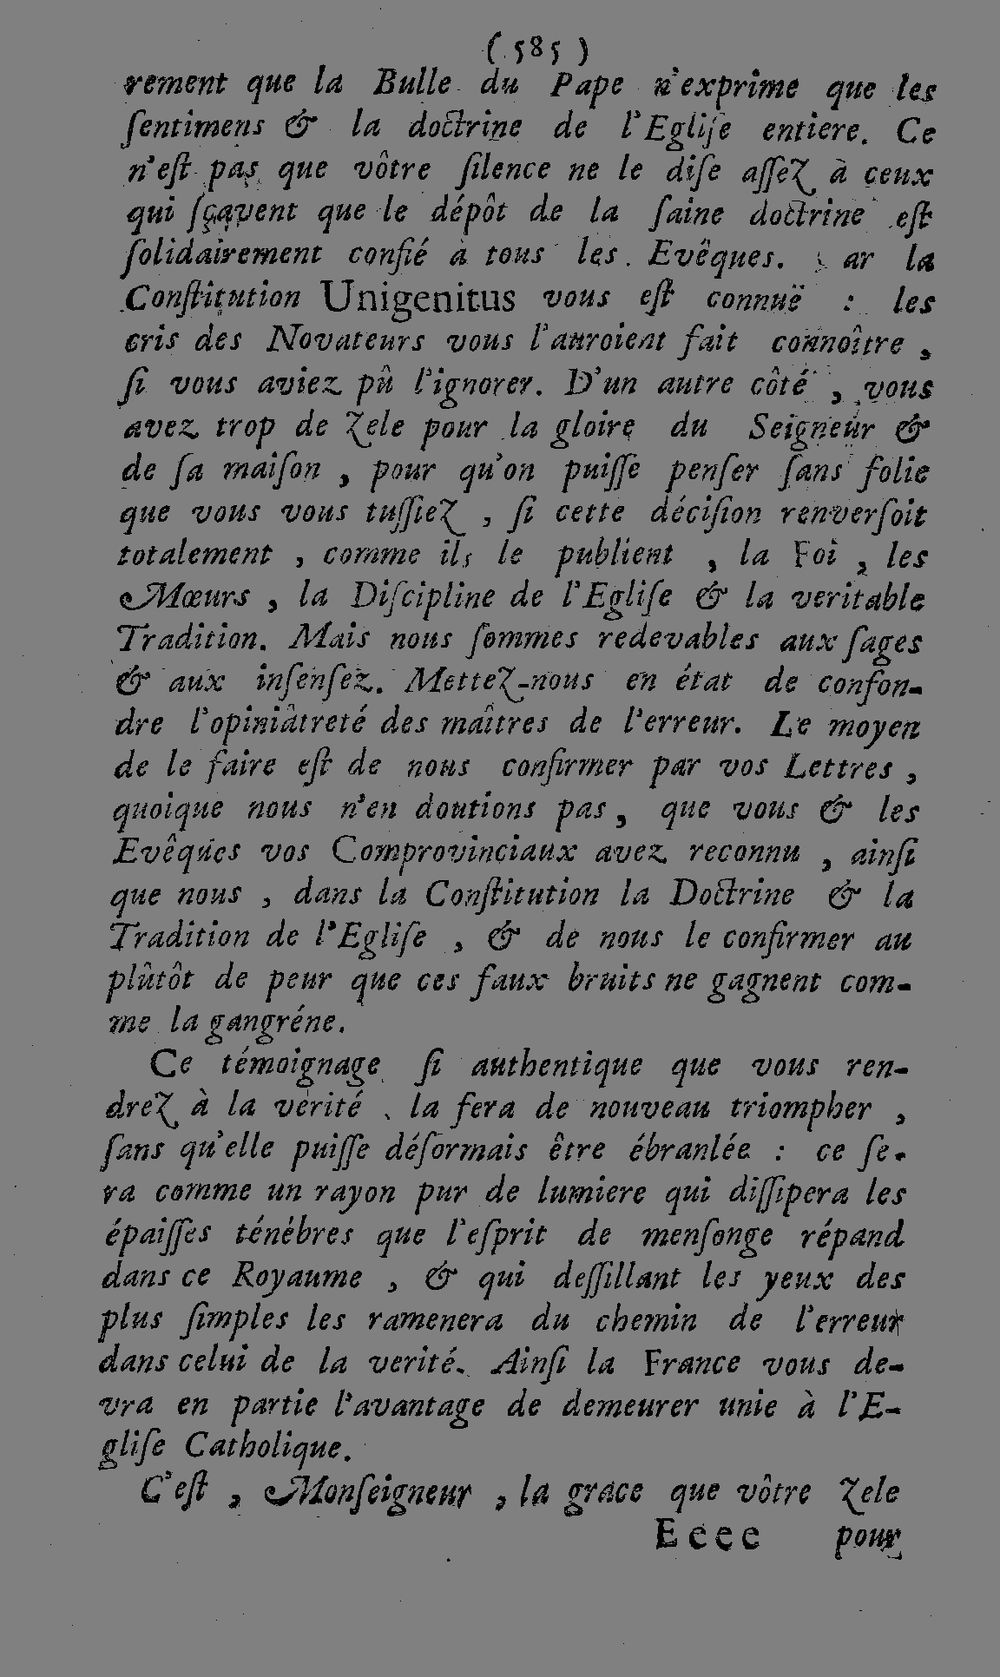 ( 585 )
rement que la Bulle du Pape n'exprime que les
ſentimens & la doctrine de l'Egliſe entiere. Ce
n'eſt pas que vôtre ſilence ne le diſe aſſez à ceux
qui ſçavent que le dépôt de la ſaine doctrine eſt
ſolidairement confié à tous les Evêques. ar la
Conſtitution Unigenitus vous eſt connuë : les
cris des Novateurs vous l'auroient fait connoître ,
ſi vous aviez pû l'ignorer. D'un autre côté , vous
avez trop de zele pour la gloire du Seigneur &
de ſa maiſon , pour qu'on puiſſe penſer ſans folie
que vous vous tuſſiez , ſi cette déciſion renverſoit
totalement , comme ils le publient , la Foi , les
Mœurs , la Diſcipline de l'Egliſe & la veritable
Tradition. Mais nous ſommes redevables aux ſages
& aux inſenſez. Mettez-nous en état de confon-
dre l'opiniâtreté des maîtres de l'erreur. Le moyen
de le faire eſt de nous confirmer par vos Lettres ,
quoique nous n'en doutions pas , que vous & les
Evêques vos Comprovinciaux avez reconnu , ainſi
que nous , dans la Conſtitution la Doctrine & la
Tradition de l'Egliſe , & de nous le confirmer au
plûtôt de peur que ces faux bruits ne gagnent com-
me la gangréne.
Ce témoignage ſi authentique que vous ren-
drez à la verité , la fera de nouveau triompher ,
ſans qu'elle puiſſe déſormais être ébranlée : ce ſe-
ra comme un rayon pur de lumiere qui diſſipera les
épaiſſes ténébres que l'eſprit de menſonge répand
dans ce Royaume , & qui deſſillant les yeux des
plus ſimples les ramenera du chemin de l'erreur
dans celui de la verité. Ainſi la France vous de-
vra en partie l'avantage de demeurer unie à l'E-
gliſe Catholique.
C'eſt , Monſeigneur , la grace que vôtre zele
Eeee pour